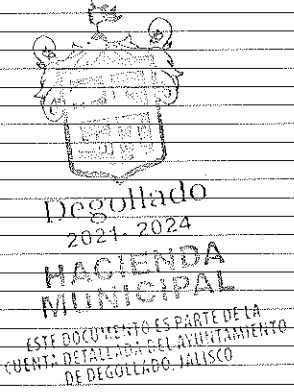 Degollado
2021-2024
HACIENDA
MUNICIPAL
ESTE DOCUMENTO ES PARTE DE LA
CUENTA DETALLADA DEL AYUNTAMIENTO
DE DEGOLLADO, JALISCO